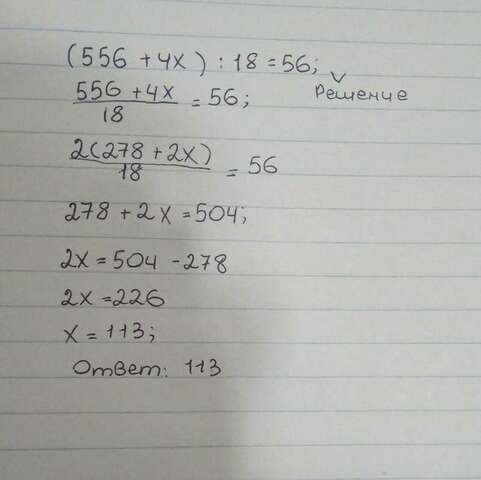 (556 + 4x) : 18 = 56;
Решение
556 + 4x / 18 = 56;
2(278 + 2x) / 18 = 56
278 + 2x = 504;
2x = 504 - 278
2x = 226
x = 113;
Ответ: 113